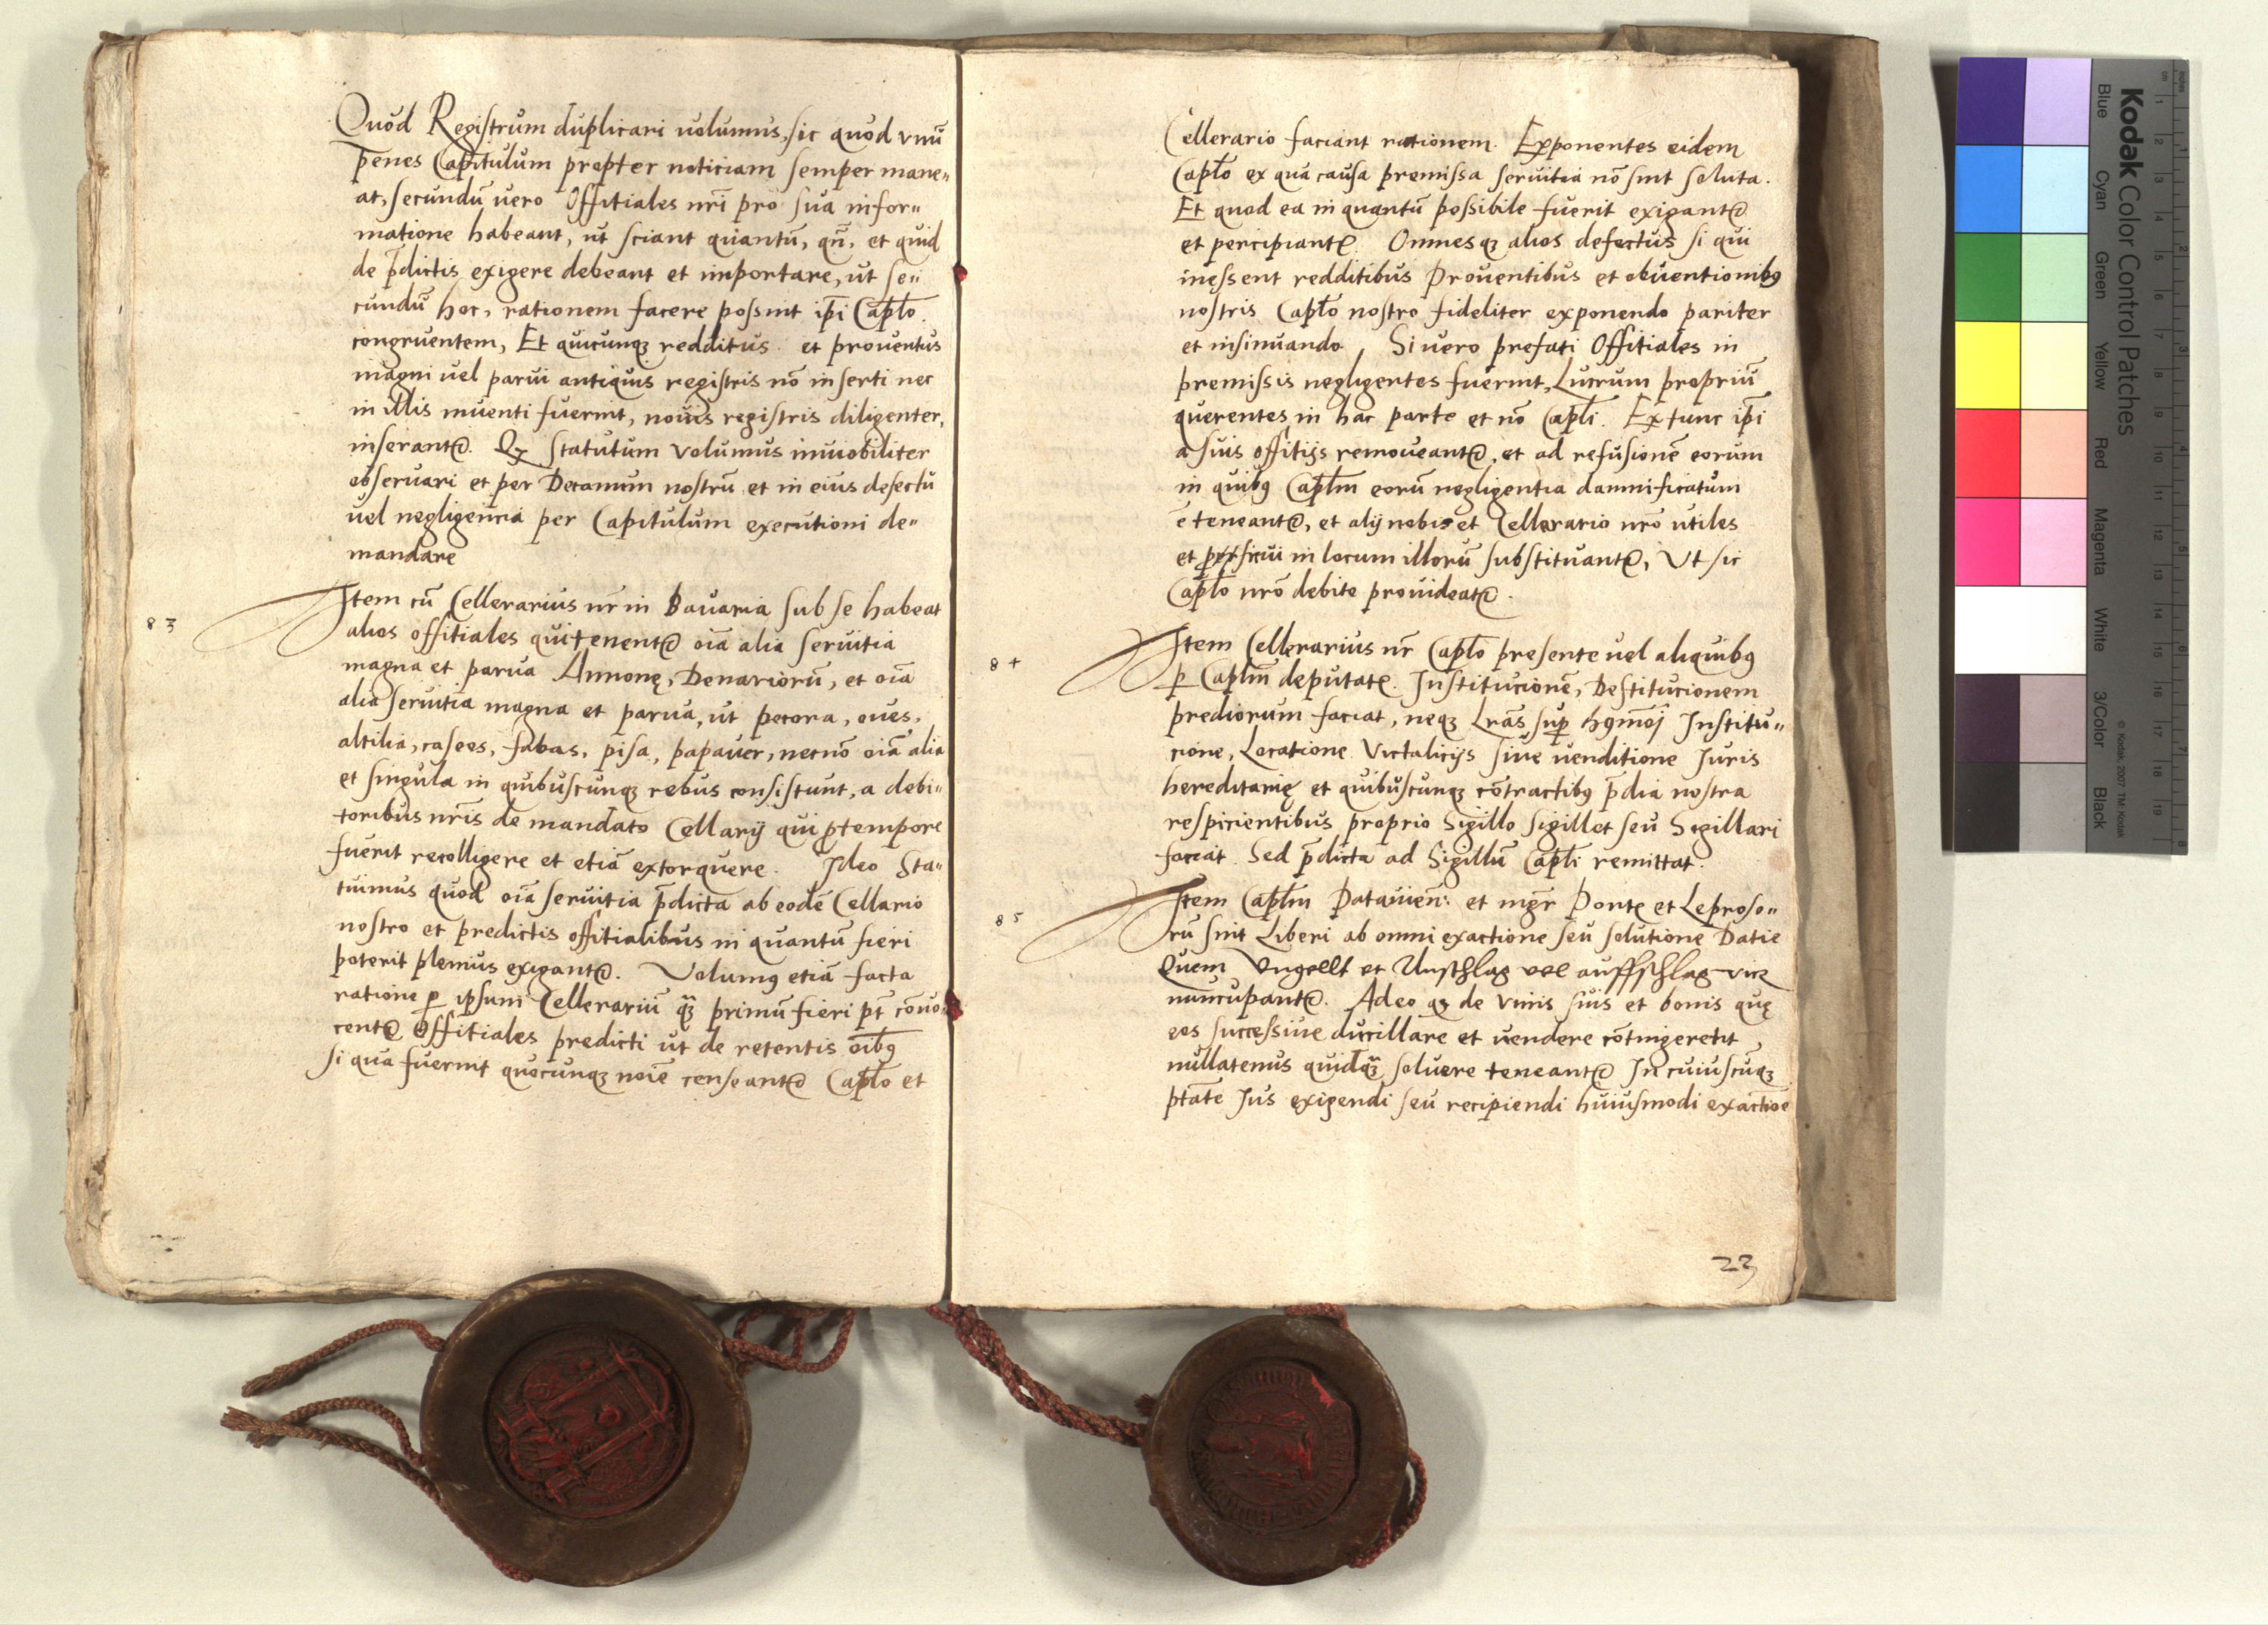 Quod Registrum duplicari volumus, sic quod vnū
penes Capitulum propter noticiam semper mane„
at, secundū vero Offitiales nr̄i pro sua infor„
matione habeant, ut sciant quantū, qn̄, et quid
de p̄dictis exigere debeant et importare, ut se„
cundū hoc, rationem facere possint ip̄i Capłō
congruentem, Et quicunqꝫ redditus et prouentus
magni uel parui antiquis registris nō inserti nec
in illis inuenti fuerint, nouis registris diligenter,
inserantꝛ. Qꝫ statutum volumus inuiobiliter
obseruari et per Decanum nostrū et in eius defectu
uel negligencia per Capitulum executioni de„
mandare
83
Item cū Cellerarius nr̄ in Bauaria sub se habeat
alios offitiales qui tenentꝛ oīa alia seruitia
magna et parua Annonę, Denariorū, et oīa
alia seruitia magna et parua, ut pecora, oues,
altilia, casees, fabas, pisa, papauer, necnō oīa alia
et singula in quibuscunqꝫ rebus consistunt, a debi„
toribus nr̄is de mandato Cellarij qui ꝓ tempore
fuerit recolligere et etiā extorquere. Ideo Sta„
tuimus quod oīa seruitia p̄dicta ab eodē Cellario
nostro et predictis offitialibus in quantū fieri
poterit plenius exigantꝛ. Volumꝰ etiā facta
ratione ꝑ ipsum Cellerariū qꝫ primū fieri pt̄ cōuo„
centꝛ Offitiales predicti ut de retentis oībꝰ
si qua fuerint quocunqꝫ noīe censeantꝛ Capłō et
Cellerario faciant rationem. Exponentes eidem
Capłō ex qua causa premissa seruitia nō sint soluta.
Et quod ea in quantū possibile fuerit exigantꝛ
et percipiantꝛ. Omnesqꝫ alios defectus si qui
inessent redditibus Prouentibus et obuentionibꝰ
nostris Capłō nostro fideliter exponendo pariter
et insinuando. Si uero prefati Offitiales in
premissis negligentes fuerint, Lucrum propriū
querentes in hac parte et nō Capłī. Ex tunc ip̄i
a suis offitijs remoueantꝛ, et ad refusionē eorum
in quibꝰ Capłm eorū negligentia damnificatum
ē teneantꝛ, et alij nobis et Cellerario nr̄o utiles
et ꝓficui in locum illorū substituantꝛ, Vt sic
Capłō nr̄o debite prouideatꝛ.
84
Item Cellerarius nr̄ Capłō presente uel aliquibꝰ
ꝑ Capłm deputatꝭ. Institucionē, Destitucionem
prediorum faciat, neqꝫ Lrās suꝑ hꝰmōj Institu„
cione, Locatione Victalicijs siue venditione Juris
hereditarię et quibuscunqꝫ cōtractibꝰ p̄dia nostra
respicientibus proprio Sigillo sigillet seu Sigillari
faciat. Sed p̄dicta ad Sigillū Capłi remittat.
85
Item Capłm Patauien̄: et mgr̄ Pontꝭ et Leproso„
rū sint Liberi ab omni exactione seu solutione Datie
Quem Vngellt et Anschlag vel auffschlag
nuncupantꝛ. Adeo qꝫ de vinis suis et bonis quę
eos successiue ducillare et uendere cōtingerent
nullatenus quidqꝫ soluere teneantꝛ In cuiuscūqꝫ
ptāte Jus exigendi seu recipiendi huiusmodi exactioē
23
Kodak Color Control Patches
© Kodak, 2007 TM: Kodak
Blue
Cyan
Green
Yellow
Red
Magenta
White
3/Color
Black
cm
1
2
3
4
5
6
7
8
9
10
11
12
13
14
15
16
17
18
19
inches
1
2
3
4
5
6
7
8